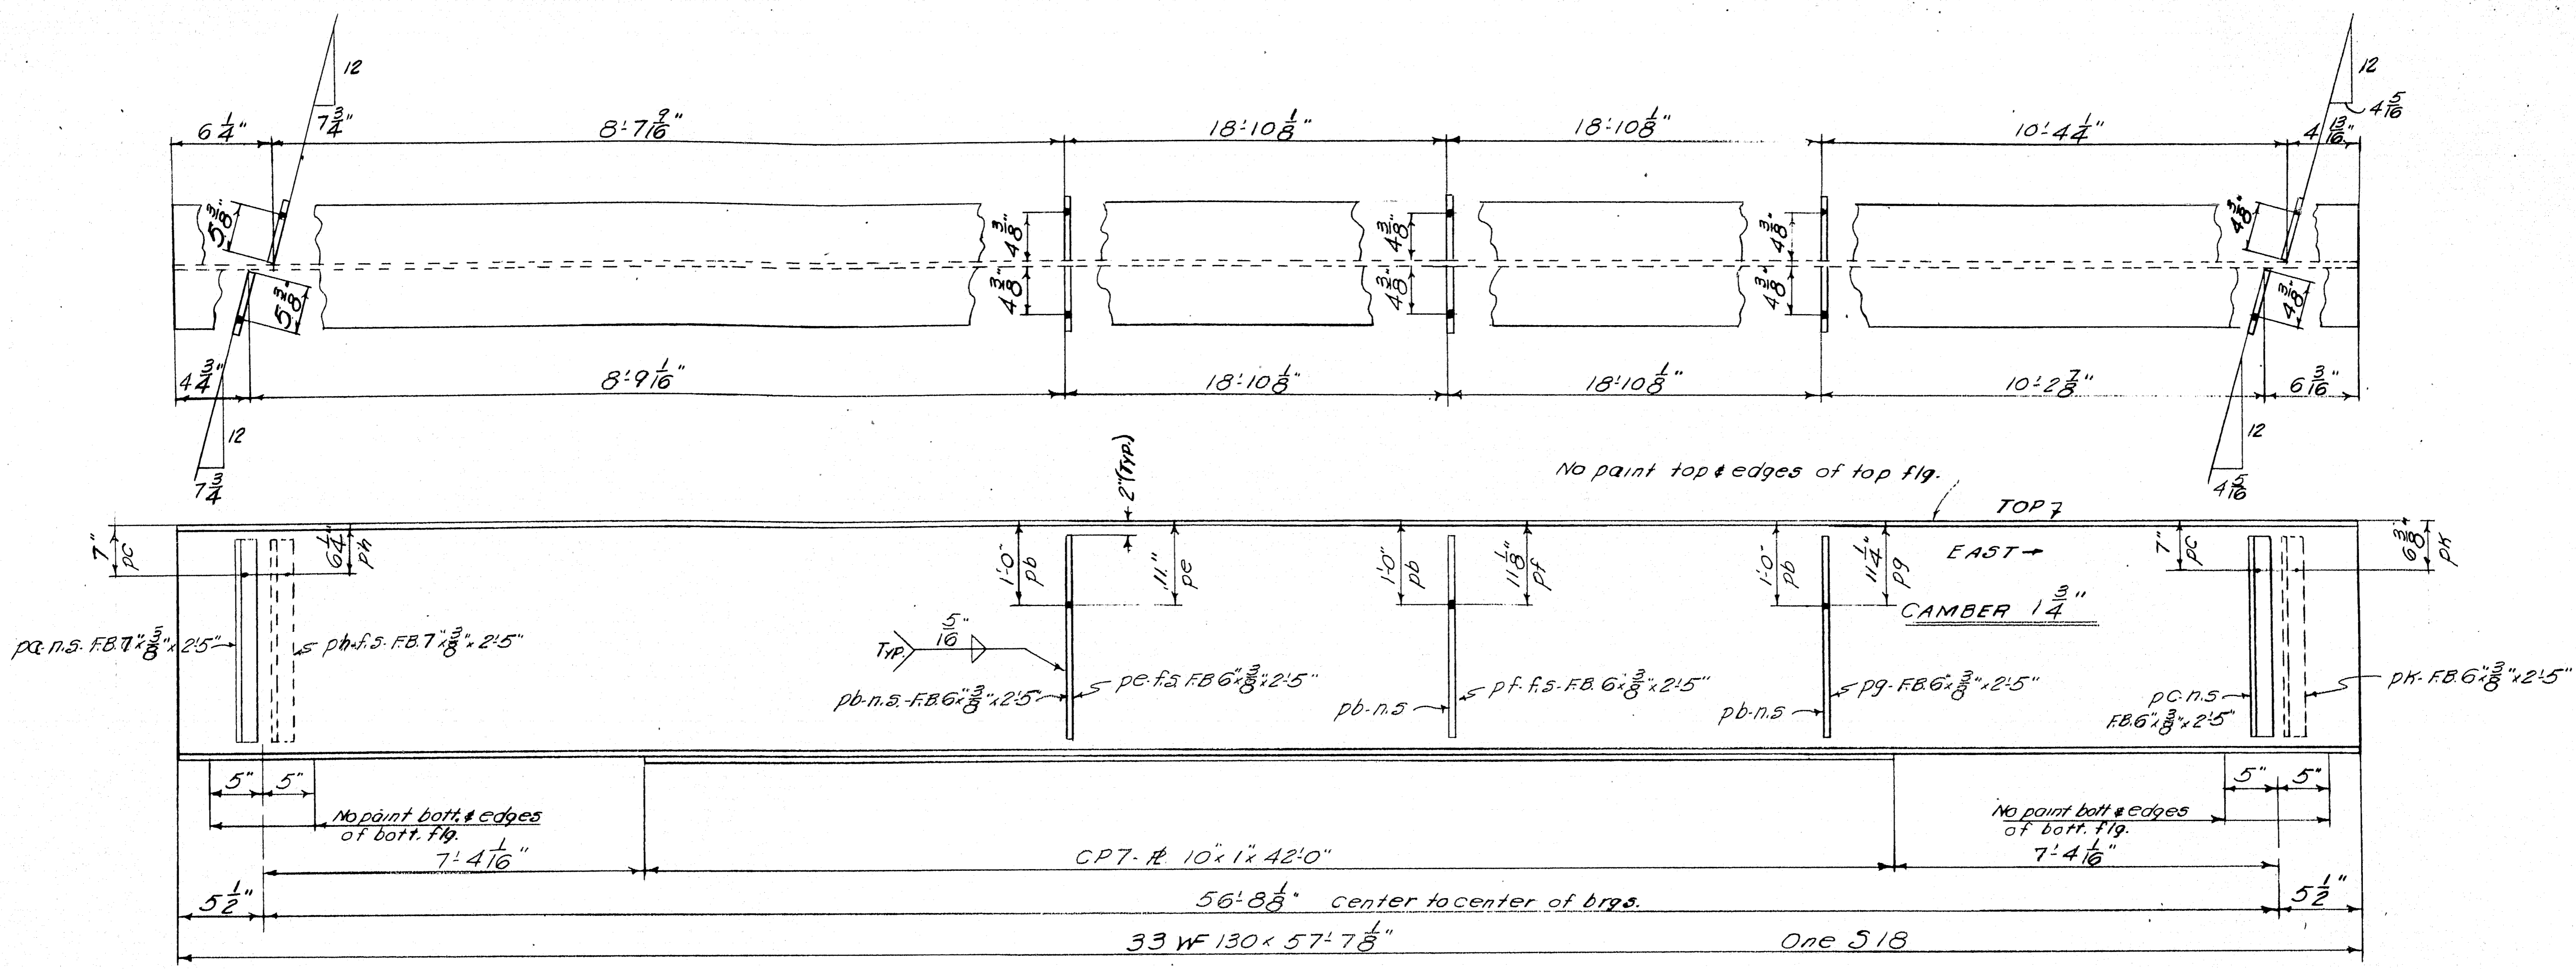 12
7 3/4"
12
4 5/16
6 1/4"
8'-7 9/16"
18'-10 1/8"
18'-10 1/8"
10'-4 1/4"
4 13/16"
5 3/8"
4 3/8"
4 3/8"
4 3/8"
4 3/8"
5 3/8"
4 3/8"
4 3/8"
4 3/8"
4 3/8"
4 3/4"
8'-9 1/16"
18'-10 1/8"
18'-10 1/8"
10'-2 7/8"
6 3/16"
12
7 3/4
12
4 5/16
2" (TYP.)
No paint top & edges of top flg.
TOP 7
7" pc
6 1/4" ph
1'-0" pb
11" pe
1'-0" pb
11 1/8" pf
1'-0" pb
11 1/4" pg
EAST →
7" pc
6 3/8" pk
CAMBER 1 3/4"
pa-n.s. F.B. 7"x 3/8"x 2'-5"
ph-f.s. F.B. 7"x 3/8"x 2'-5"
TYP. 5/16
pb-n.s.-F.B. 6"x 3/8"x 2'-5"
pe-f.s. F.B. 6"x 3/8"x 2'-5"
pb-n.s
pf-f.s-F.B. 6"x 3/8"x 2'-5"
pb-n.s
pg-F.B. 6"x 3/8"x 2'-5"
pc-n.s
F.B. 6"x 3/8"x 2'-5"
pk-F.B. 6"x 3/8"x 2'-5"
5" 5"
5" 5"
No paint bott. & edges
of bott. flg.
No paint bott & edges
of bott. flg.
7'-4 1/16"
CP7-PL 10"x 1"x 42'-0"
7'-4 1/16"
5 1/2"
56'-8 1/8" center to center of brgs.
5 1/2"
33 WF 130 x 57'-7 1/8"
One S 18